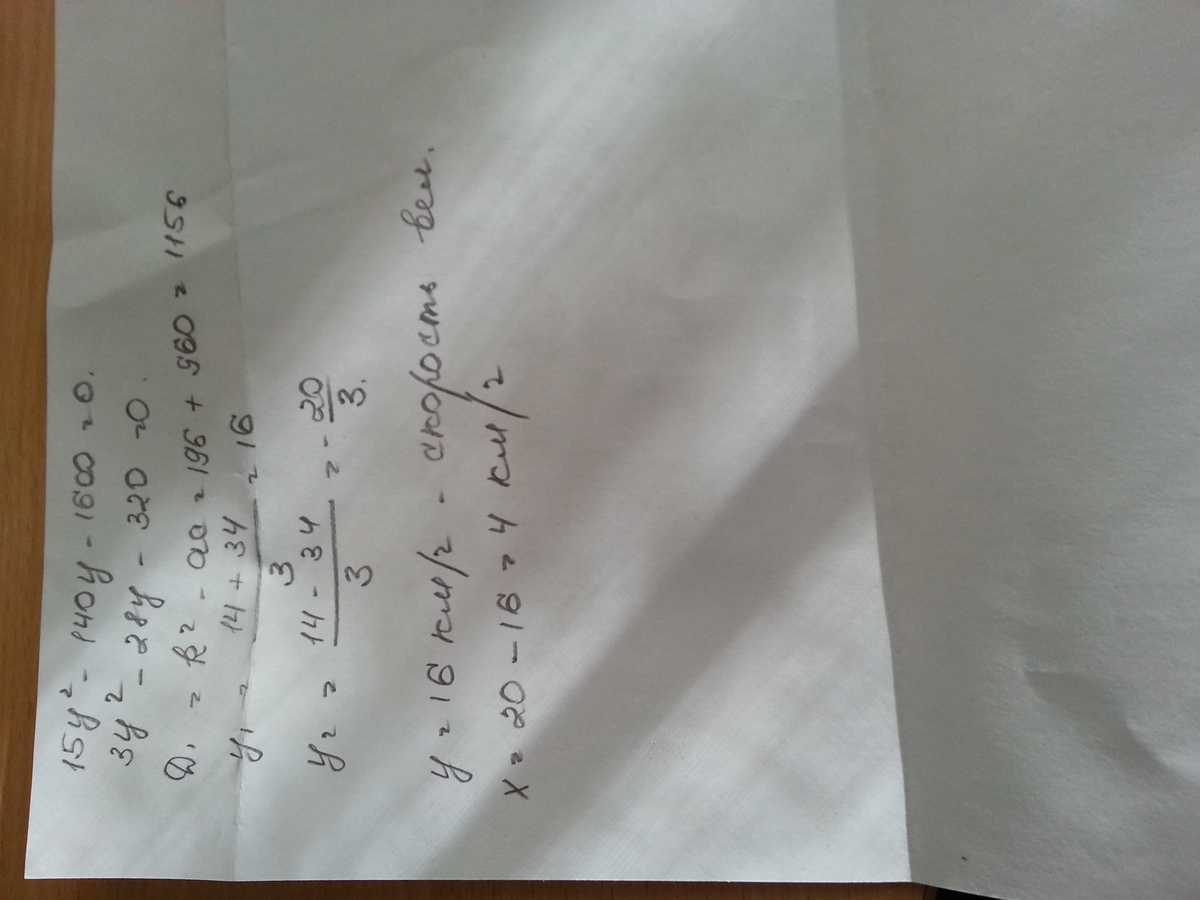 15y² - 140y - 1600 = 0.
3y² - 28y - 320 = 0.
D₁ = k² - ac = 196 + 960 = 1156
y₁ = (14 + 34)/3 = 16
y₂ = (14 - 34)/3 = - 20/3.
y = 16 км/г - скорость вел.
x = 20 - 16 = 4 км/г